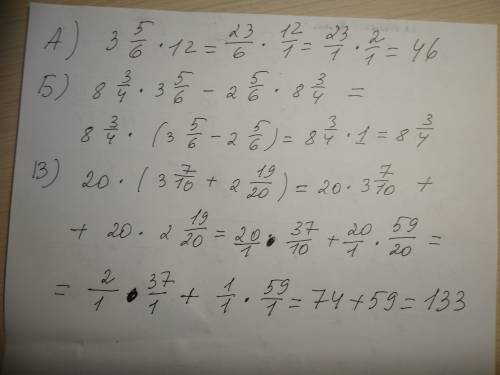 А) 3 5/6 · 12 = 23/6 · 12/1 = 23/1 · 2/1 = 46
Б) 8 3/4 · 3 5/6 - 2 5/6 · 8 3/4 =
8 3/4 · (3 5/6 - 2 5/6) = 8 3/4 · 1 = 8 3/4
В) 20 · (3 7/10 + 2 19/20) = 20 · 3 7/10 +
+ 20 · 2 19/20 = 20/1 · 37/10 + 20/1 · 59/20 =
= 2/1 · 37/1 + 1/1 · 59/1 = 74 + 59 = 133